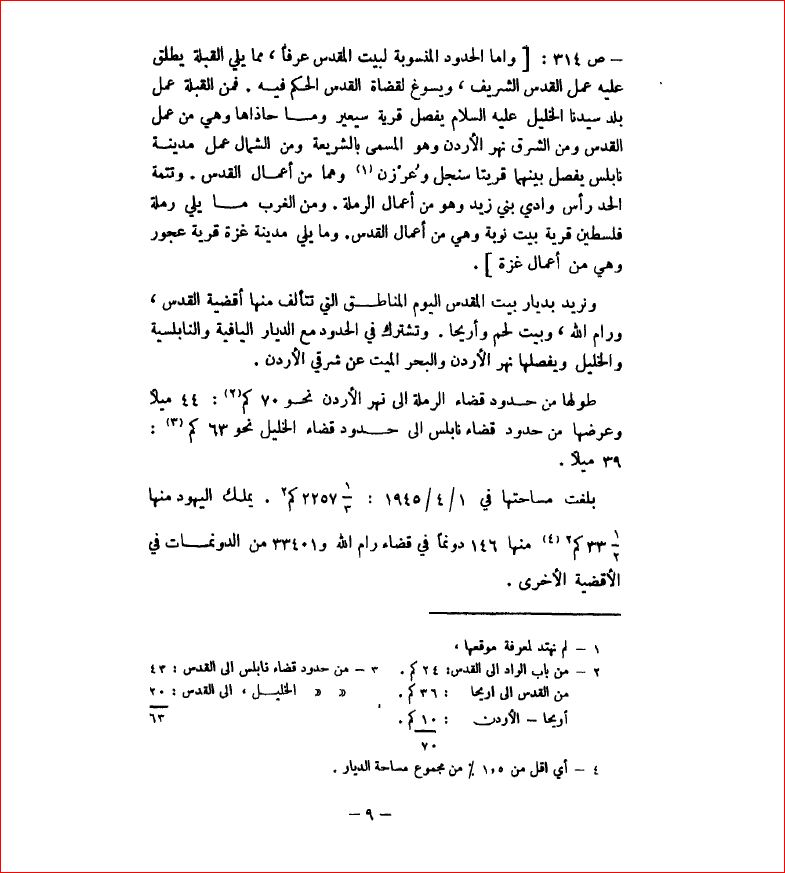 – ص ٣١٤ : [ واما الحدود المنسوبة لبيت المقدس عرفاً ، مما يلي القبلة يطلق
عليه عمل القدس الشريف ، ويسوغ لقضاة القدس الحكم فيـه . فمن القبلة عمل
بلد سيدنا الخليل عليه السلام يفصل قرية سيعير ومـــا حاذاها وهي من عمل
القدس ومن الشرق نهر الأردن وهو المسمى بالشريعة ومن الشمال عمل مدينـة
نابلس يفصل بينهما قريتا سنجل وعُزْرن (١) وهما من أعمـال القدس . وتتمة
الحد رأس وادي بني زيد وهو من أعمال الرملة . ومن الغرب مـــا يلي رملة
فلسطين قرية بيت نوبة وهي من أعمال القدس. وما يلي مدينة غزة قرية عجور
وهي من أعمال غزة ] .
ونريد بديار بيت المقدس اليوم المناطـــق التي تتألف منها أقضية القدس ،
ورام الله ، وبيت لحم وأريحا . وتشترك في الحدود مع الديار اليافية والنابلسية
والخليل ويفصلها نهر الأردن والبحر الميت عن شرقي الأردن .
طولها من حـــدود قضاء الرملة الى نهر الأردن نحـو ٧٠ كم(٢) : ٤٤ ميلاً
وعرضها من حدود قضاء نابلس الى حـــدود قضاء الخليل نحو ٦٣ كم (٣) :
٣٩ ميلاً .
بلغت مساحتها في ١ /٤ /١٩٤٥ : ٢٢٥٧ ١/٣ كم٢ . يملـك اليهود منها
٣٣ ١/٢ كم٢ (٤) منها ١٤٦ دونماً في قضاء رام الله و٣٣٤٠١ من الدونمـــات في
الأقضية الأخرى .
١ – لم نهتد لمعرفة موقعها ،
٢ – من باب الواد الى القدس: ٢٤ كم . ٣ – من حدود قضاء نابلس الى القدس : ٤٣
من القدس الى اريحا : ٣٦ كم . » » الخليـــل ، الى القدس : ٢٠
أريحا – الأردن : ١٠ كم . ٦٣
٧٠
٤ – أي اقل من ١,٥ % من مجموع مساحة الديار .
– ٩ –